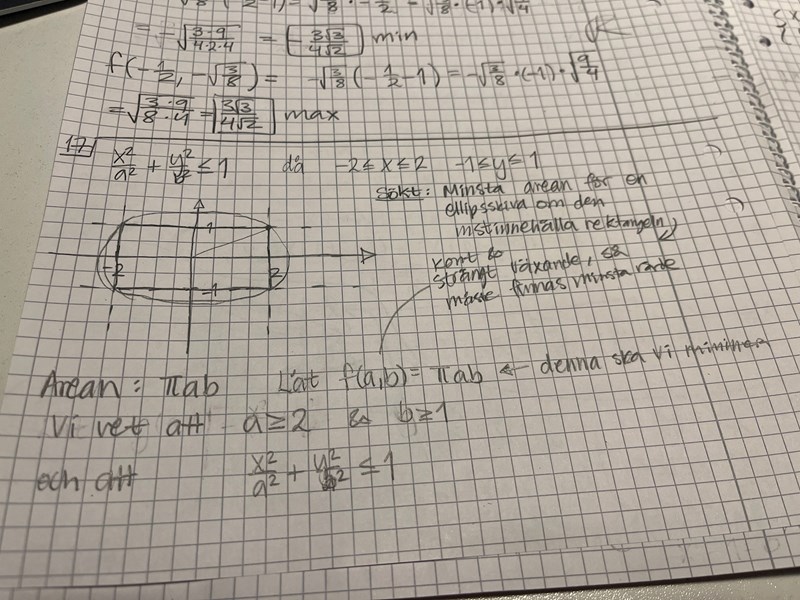 = -√(3·9/4·2·4) = (-3√3/4√2) min
f(-1/2, -√(3/8)) = -√(3/8) (-1/2 -1) = -√(3/8) ·(-1)·√(9/4)
= √(3·9/8·4) = 3√3/4√2 max
17 x²/a² + y²/b² ≤ 1 då -2 ≤ x ≤ 2 -1 ≤ y ≤ 1
Sökt: Minsta arean för en
ellipsskiva om den
måste innehålla rektangeln
1
-2 2
-1
kont &
strängt växande, så
måste finnas minsta värde
Arean: πab Låt f(a,b) = πab ← denna ska vi
Vi vet att a ≥ 2 & b ≥ 1
och att x²/a² + y²/b² ≤ 1